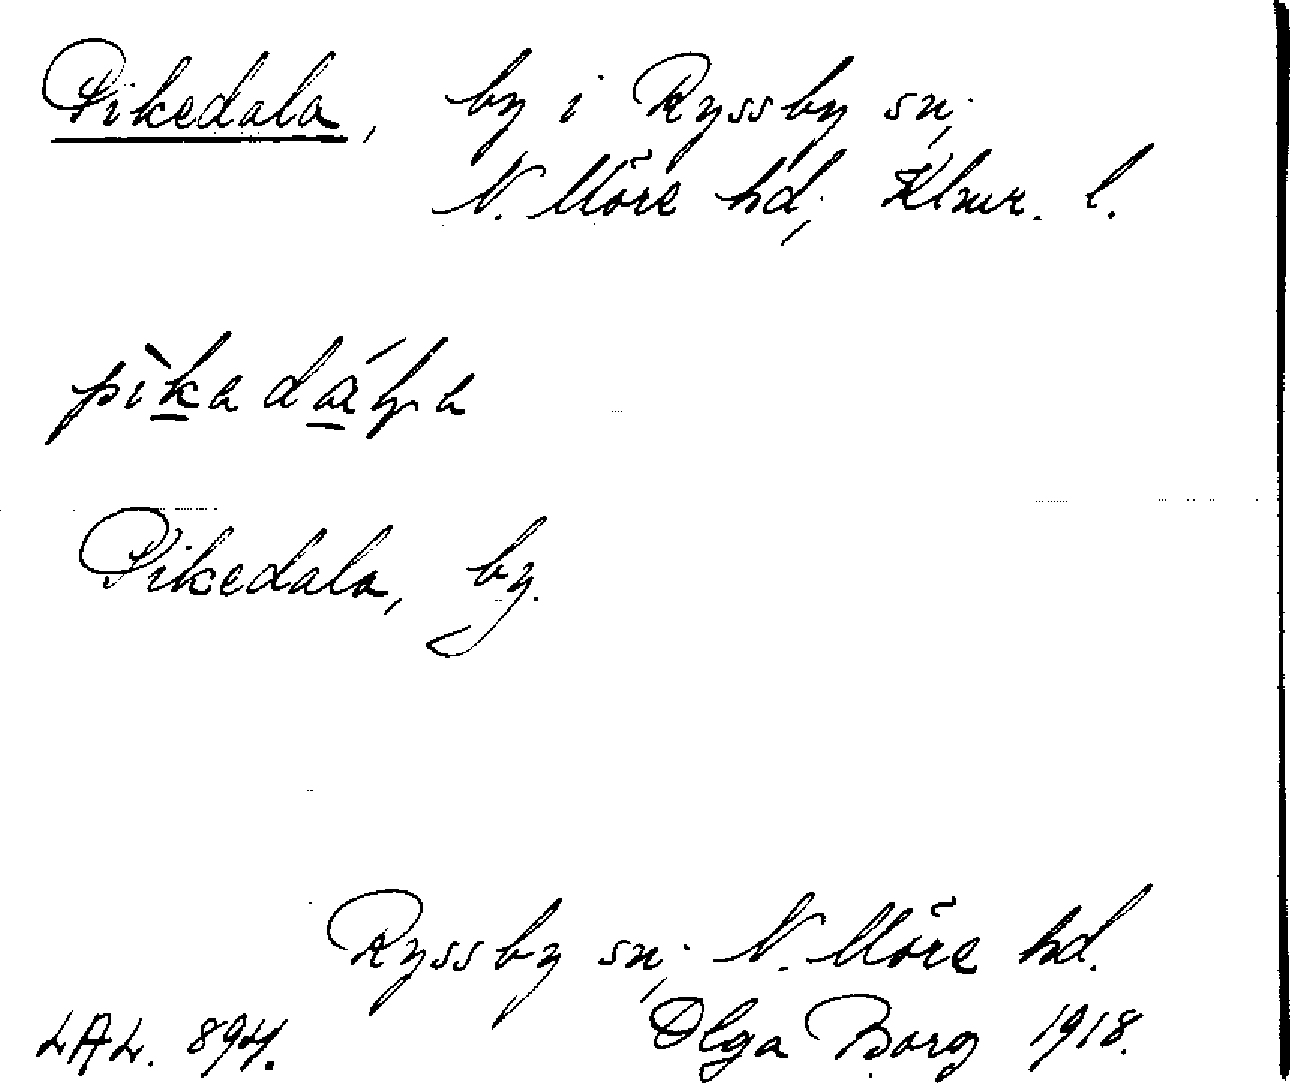 Pikedala, by i Ryssby sn;
N. Möre hd; Klmr. l.
pìkadáļa
Pikedala, by.
Ryssby sn; N. Möre hd.
LAL. 894. Olga Borg 1918.